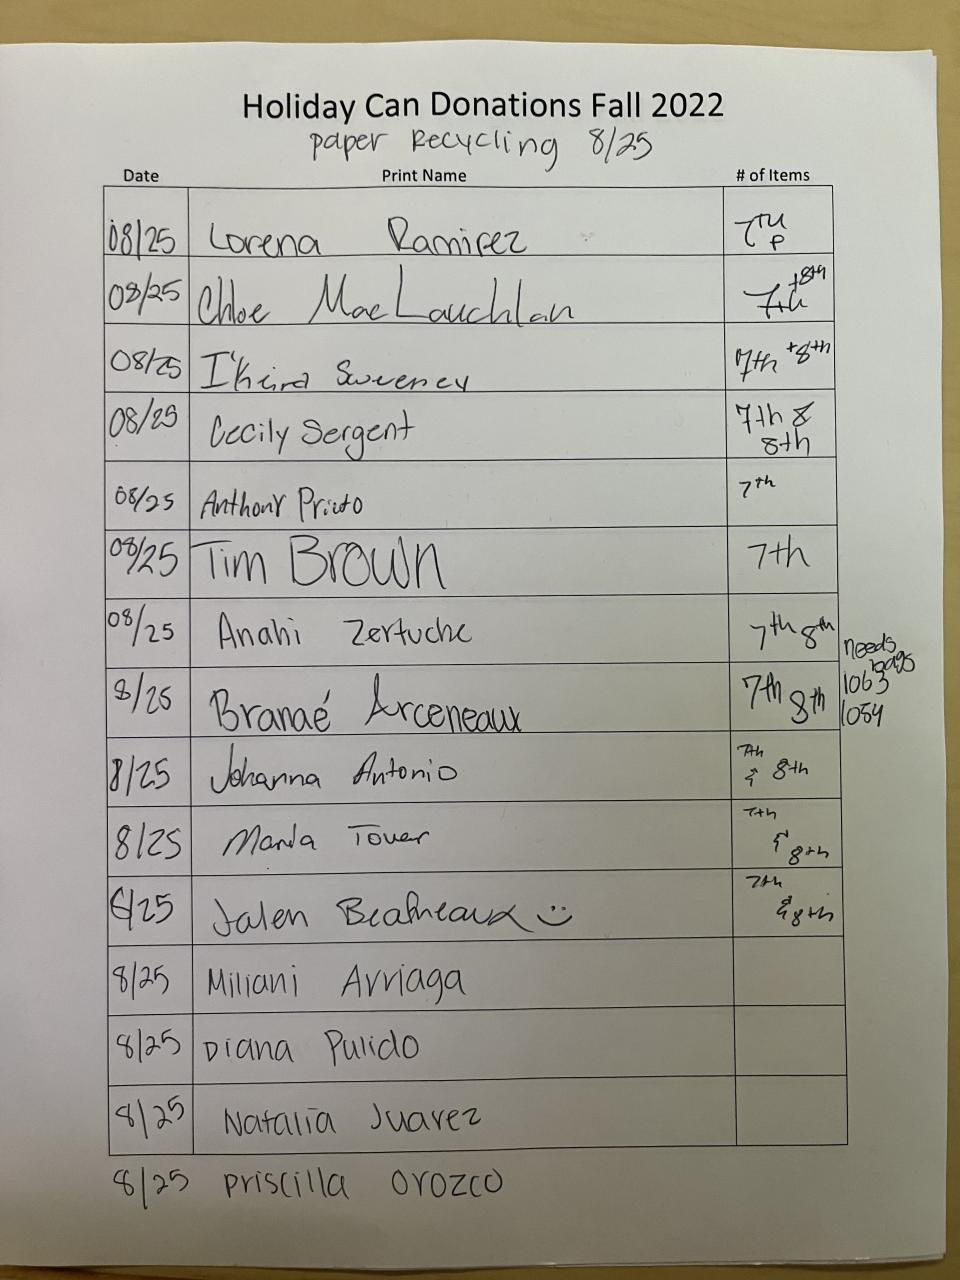 Holiday Can Donations Fall 2022
paper Recycling 8/25
Date Print Name # of Items
08/25 Lorena Ramirez 7TH P
08/25 Chloe MacLauchlan 7th +8th
08/25 I'Keira Sweeney 7th +8th
08/25 Cecily Sergent 7th &
8th
08/25 Anthony Prieto 7th
08/25 Tim Brown 7th
08/25 Anahi Zertuche 7th 8th
needs
bags
8/25 Branaé Arceneaux 7th 8th 1063
1054
8/25 Johanna Antonio 7th
& 8th
8/25 Tovar 7th
& 8th
8/25 Jalen :)  7th
& 8th
8/25 Miliani Arriaga
8/25 Diana Pulido
8/25 Natalia Juarez
8/25 Priscilla Orozco